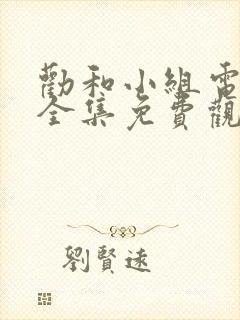 勸和小組電
全集免費觀
劉賢遠